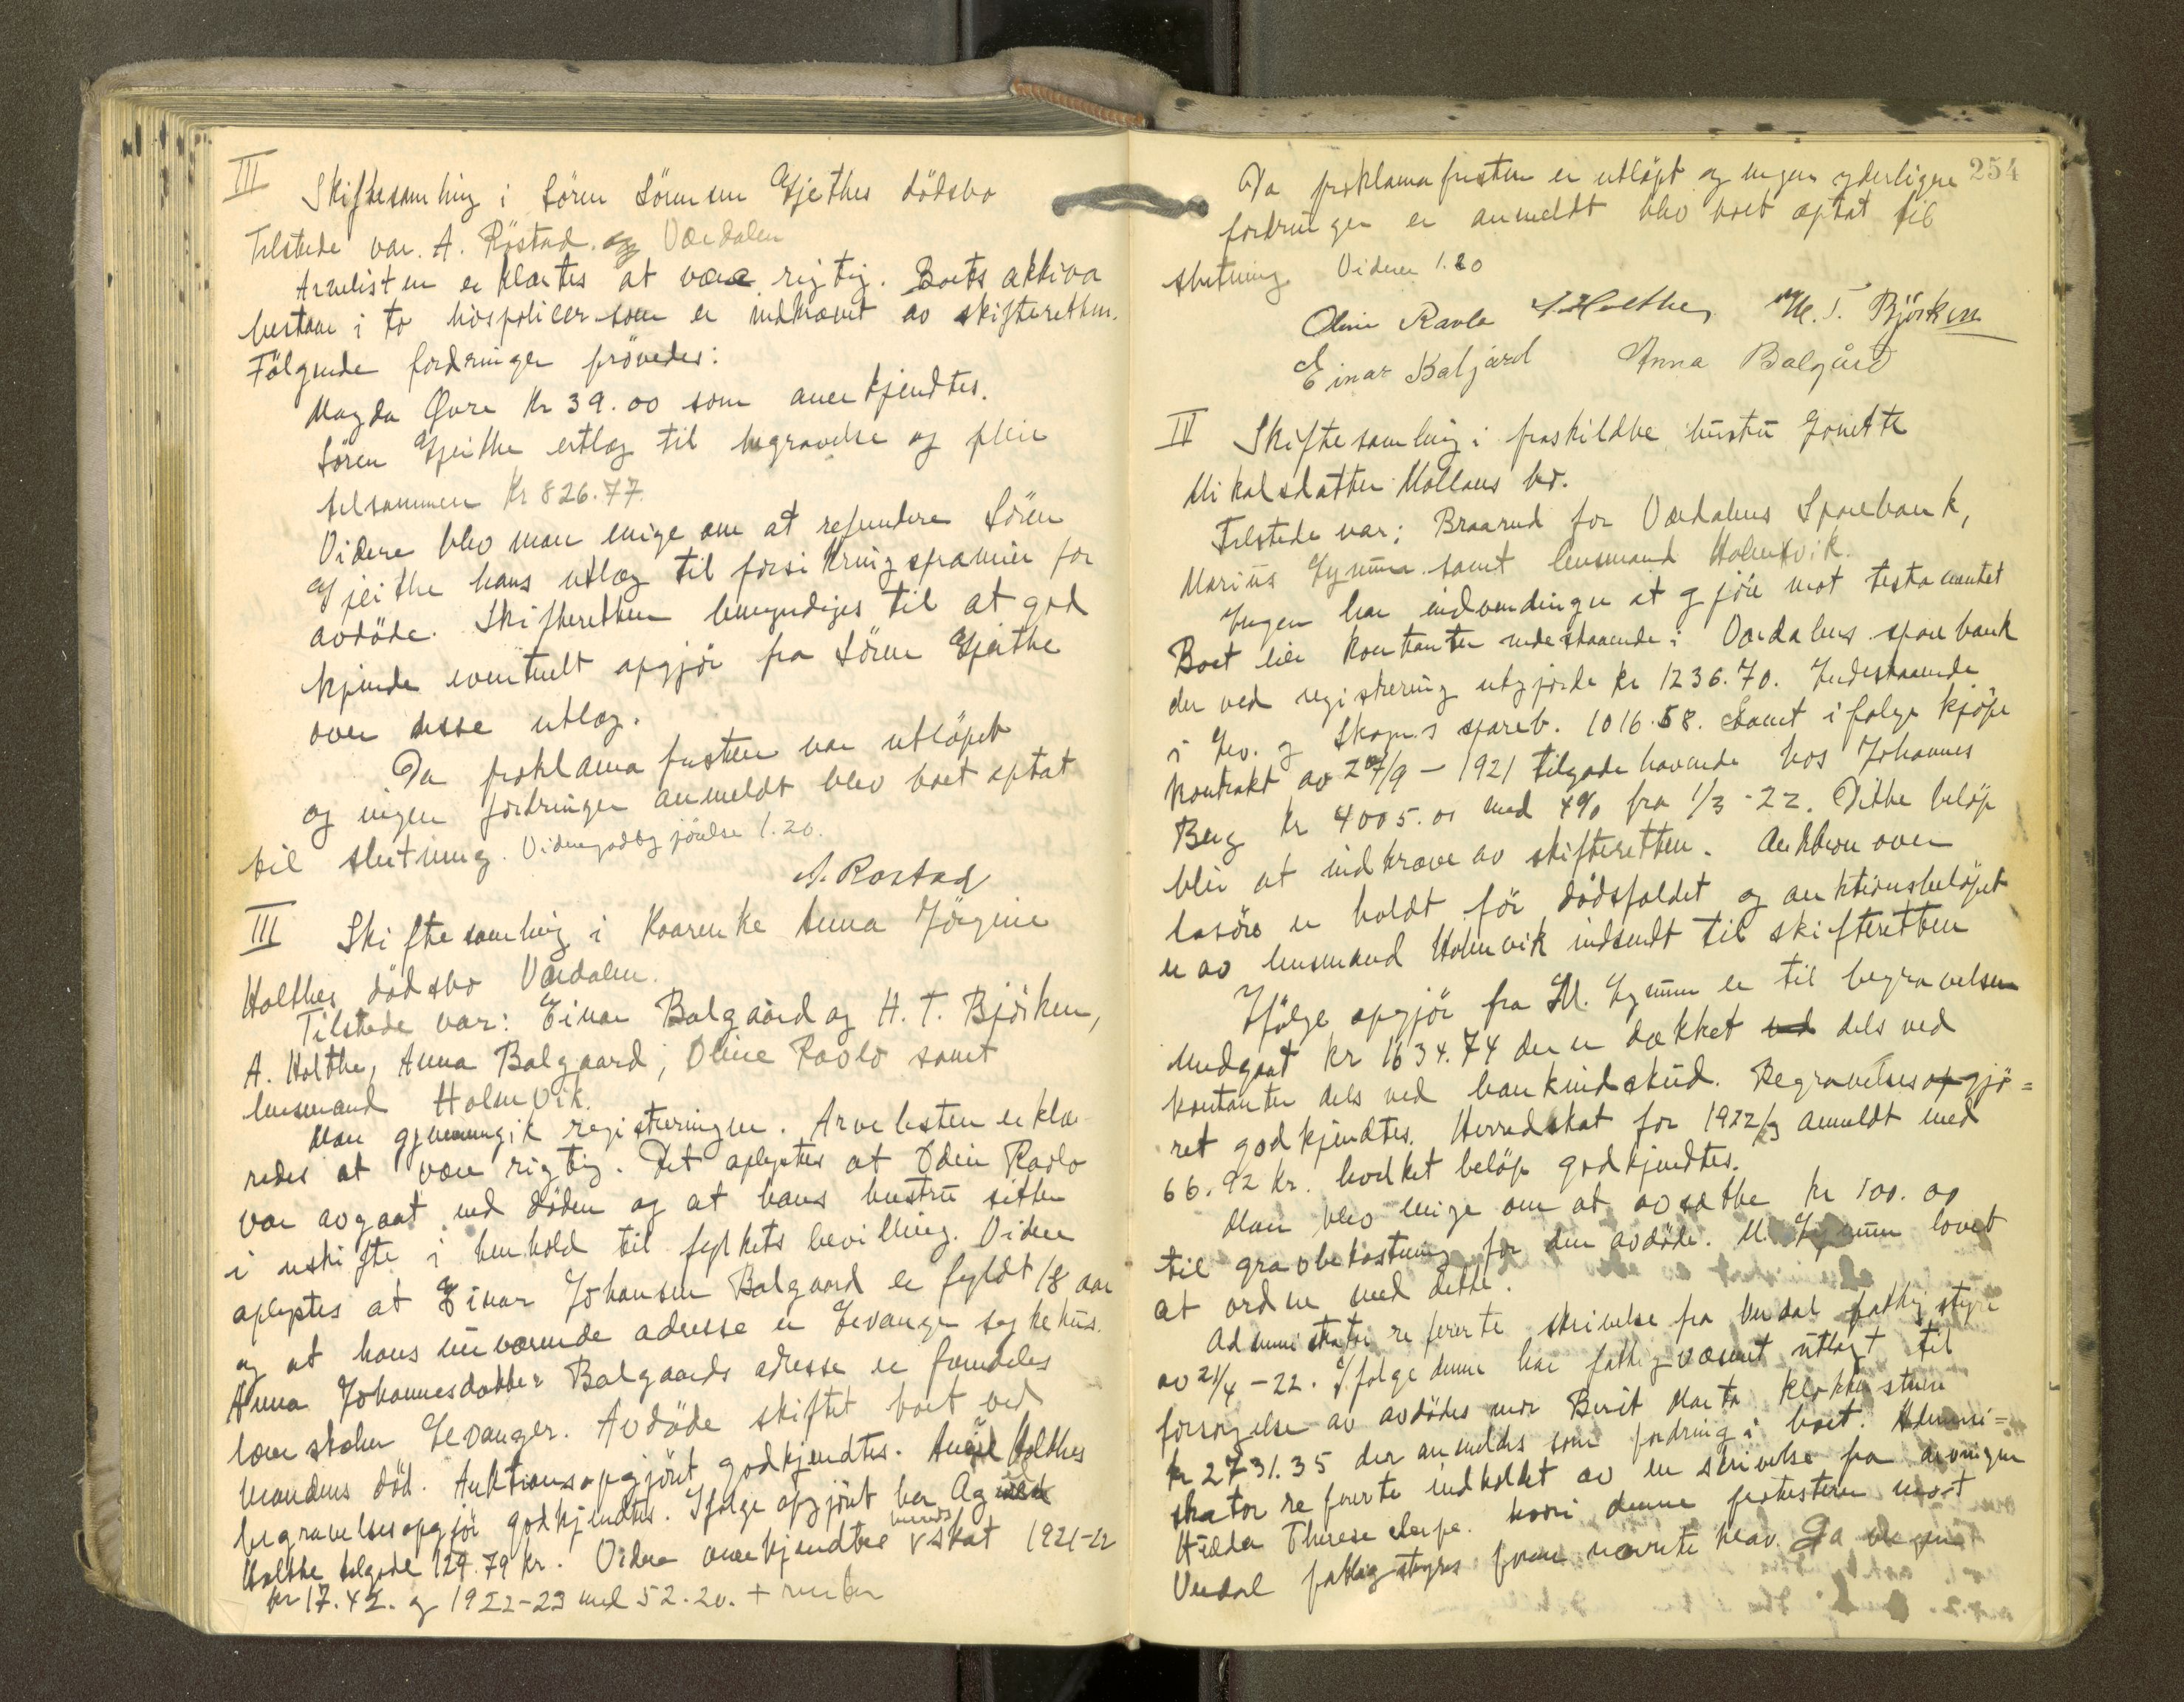 III
Skiftesamling i Sören Sörensen Gjeithes dödsbo
Tilstede var. A. Röstad. og Værdalen
Arvelisten erklærtes at være rigtig. Boets aktiva
bestaar i to livspolicer som er indkrævet av skifteretten.
Fölgende fordringer prövedes:
Magda Øvre Kr 39.00 som anerkjendtes.
Sören Gjeithe utlæg til begravelse og pleie
tilsammen Kr 826.77.
Videre blev man enige om at refundere Sören
Gjeithe hans utlæg til forsikringspræmier for
avdöde. Skifteretten bemyndiges til at god
kjende eventuelt opgjör fra Sören Gjeithe
over disse utlæg.
Da proklamafristen var utlöpet
og ingen fordringer anmeldt blev boet optat
til slutning. Vidnegodtgjörelse 1.20.
A. Rostad
III Skiftesamling i Kaarenke Anna Jörgine
Holthes dödsbo Værdalen.
Tilstede var: Einar Balgaard og H. T. Björken,
A. Holthe, Anna Balgaard, Oline Ravlo samt
lensmand Holmvik.
Man gjennemgik registreringen. Arvelisten erklæ
redes at være rigtig. Det oplystes at Odin Ravlo
var avgaat ved döden og at hans hustru sitter
i uskifte i henhold til fylkets bevilling. Videre
oplystes at Einar Johansen Balgaard er fyldt 18 aar
og at hans nuværende adresse er Levanger sykehus.
Anna Johannesdatter Balgaards adresse er fremdeles
lærerskolen Levanger. Avdöde skiftet boet ved
mandens död. Auktionsopgjöret godkjendtes. Holthes
begravelsesopgjör godkjendtes. Ifölge opgjöret har
Holthe tilgode 129.79 kr. Videre anerkjendtes herreds skat 1921-22
kr 17.42. og 1922-23 med 52.20. + renter
254
Da proklamafristen er utlöpt og ingen yderligere
fordringer er anmeldt blev boet optat til
slutning Vidner 1.20
Oline Ravlo A Holthe H. T. Björken
Einar Balgård Anna Balgård
IV Skiftesamling i fraskildte hustru
Mikalsdatter Mollans bo.
Tilstede var; Braarud for Værdalens Sparebank,
Marius Lynum samt lensmand Holmvik.
Ingen har indvendinger at gjöre mot testamentet
Boet eier kontanter indestaaende i Værdalens sparebank
der ved registrering utgjorde kr 1236.70. Indestaaende
i Lev. og Skogns spareb. 1016.58. Samt i fölge kjöpe
kontrakt av 27/9 - 1921 tilgodehavende hos Johannes
Berg kr 4005.00 med 4% fra 1/3 -22. Dette belöp
blir at indkræve av skifteretten. Auktion over
lösöre er holdt för dödsfaldet og auktionsbelöpet
er av lensmand Holmvik indsendt til skifteretten
Ifölge opgjör fra M. Lynum er til begravelsen
medgaat kr 1634.74 der er dækket ved dels ved
kontanter dels ved bankindskud. Begravelsesopgjö=
ret godkjendtes. Herredskat for 1922/23 anmeldt med
66.92 kr. hvilket belöp godkjendtes.
Man blev enige om at avsætte kr 100.00
til gravbekostning for den avdöde. M. Lynum lovet
at ordne med dette.
Administrator refererte skrivelse fra Verdal fattigstyre
av 21/4 -22. Ifölge denne har fattigvæsenet utlagt til
forsörgelse av avdödes mor Berit Marta
kr 2731.35 der anmeldes som fordring i boet. Admini=
strator refererte indholdet av en skrivelse fra arvingen
Hilda Therese hvori denne protesterer mot
Verdal fattigstyres krav. Da